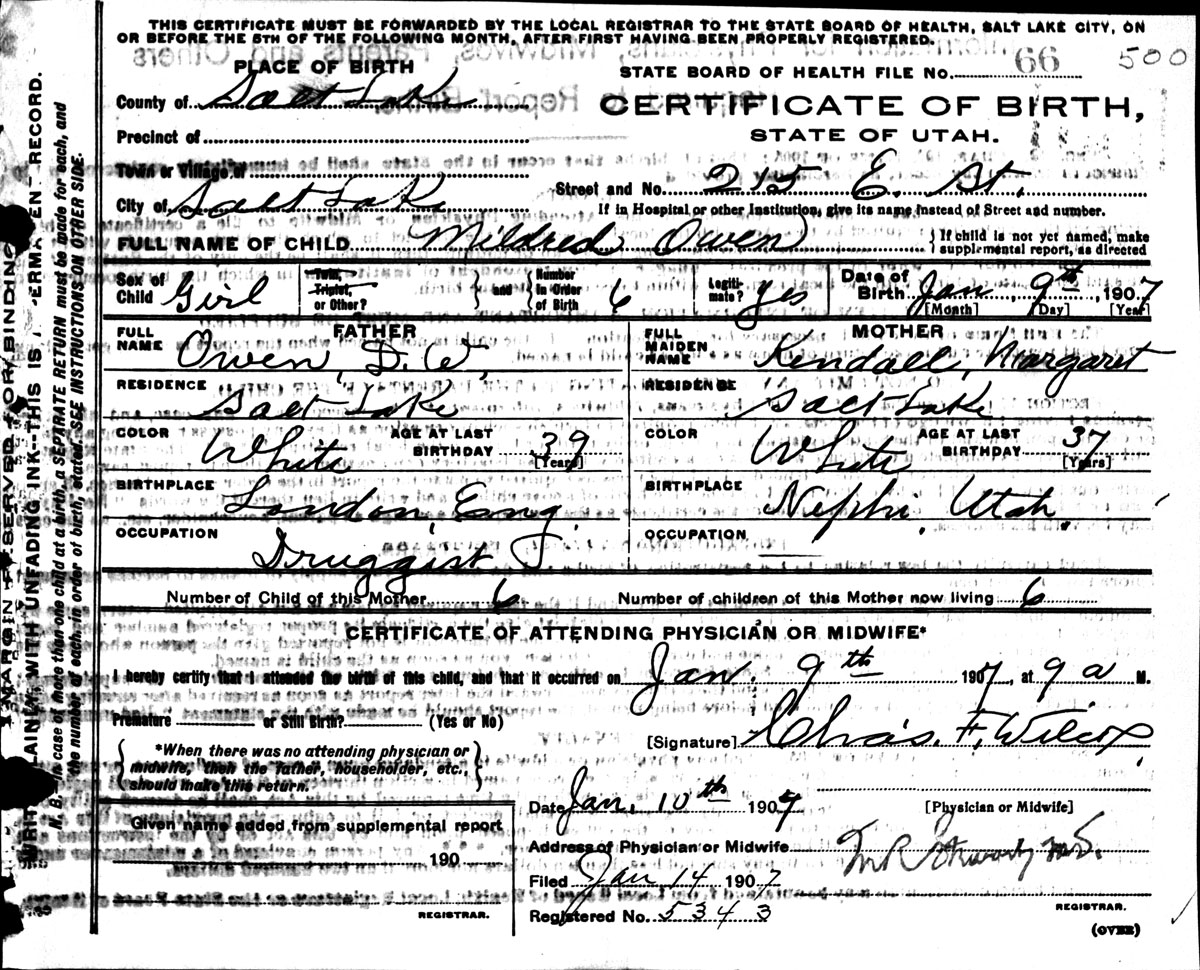 THIS CERTIFICATE MUST BE FORWARDED BY THE LOCAL REGISTRAR TO THE STATE BOARD OF HEALTH, SALT LAKE CITY, ON
OR BEFORE THE 5TH OF THE FOLLOWING MONTH, AFTER FIRST HAVING BEEN PROPERLY REGISTERED.
PLACE OF BIRTH
STATE BOARD OF HEALTH FILE NO. 66 500
County of Salt Lake
CERTIFICATE OF BIRTH,
Precinct of
STATE OF UTAH.
Town or Village of
Street and No. 215 E. St.
City of Salt Lake
If in Hospital or other Institution, give its name instead of Street and number.
FULL NAME OF CHILD Mildred Owen
If child is not yet named, make
supplemental report, as directed
Sex of Child Girl
Twin, Triplet, or Other?
and
Number in Order of Birth 6
Legitimate? Yes
Date of Birth Jan, 9th, 1907
[Month] [Day] [Year]
FATHER
FULL NAME Owen, D. W.
RESIDENCE
Salt Lake
COLOR White AGE AT LAST BIRTHDAY 39
[Years]
BIRTHPLACE London, Eng.
OCCUPATION
Druggist
MOTHER
FULL MAIDEN NAME Kendall, Margaret
RESIDENCE
Salt Lake
COLOR White AGE AT LAST BIRTHDAY 37
[Years]
BIRTHPLACE Nephi, Utah.
OCCUPATION
Number of Child of this Mother 6 Number of children of this Mother now living 6
CERTIFICATE OF ATTENDING PHYSICIAN OR MIDWIFE*
I hereby certify that I attended the birth of this child, and that it occurred on Jan. 9th 1907, at 9 a M.
Premature or Still Birth? (Yes or No)
[Signature] Chas. F. Wilcox,
*When there was no attending physician or
midwife, then the father, householder, etc.,
should make this return.
Date Jan, 10th 1907
[Physician or Midwife]
Given name added from supplemental report
190
REGISTRAR.
Address of Physician or Midwife
Filed Jan 14 1907
REGISTRAR.
Registered No. 5343
(OVER)
MARGIN RESERVED FOR BINDING
WRITE PLAINLY, WITH UNFADING INK--THIS IS A PERMANENT RECORD.
N. B. In case of more than one child at a birth, a SEPARATE RETURN must be made for each, and
the number of each, in order of birth, stated. SEE INSTRUCTIONS ON OTHER SIDE.